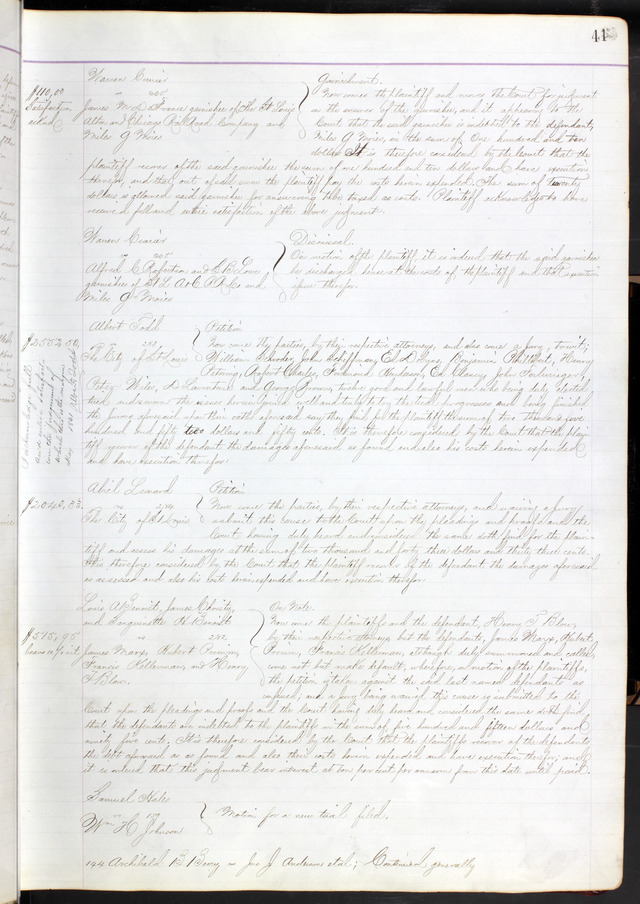 41
Warren Currier
vs
James M. D. France garnishee of the St. Louis
Alton and Chicago Rail Road Company and
Miles G Moies
$110,00
Satisfaction
acknd
Garnishment.
Now comes the plaintiff and moves the Court for judgment
on the answer of the garnishee, and it appearing to the
Court that the said garnishee is indebted to the defendant,
Miles G Moies, in the sum of One hundred and ten
dollars It is therefore considered by the Court that the
plaintiff recover of the said garnishee the sum of one hundred and ten dollars and have execution
therefor, and that out of said sum the plaintiff pay the costs herein expended. The sum of twenty
dollars is allowed said garnishee for answering then taxed as costs. Plaintiff acknowledges to have
received full and entire satisfaction of the above judgment.
Warren Currier
vs
Alfred C. and L. B. Love
garnishees of St L. A & C. R. R. Co and
Miles G Moies
Dismissal.
On motion of the plaintiff, it is ordered that the said garnishee
be discharged hence at the costs of the plaintiff and that execution
issue therefor.
Albert Todd
vs
The City of St Louis
$2552,50,
Petition
Now come the parties, by their respective attorneys, and also come a jury, towit;
William Shroder, John Schiffman, Ed. D. Benjamin Henry
Robert Charles, Ed. Clancy, John
Peter Wiles, and twelve good and lawful men who being duly elected
tried and sworn the issues herein joined well and truly to try the trial progresses and being finished
the jurors aforesaid upon their oaths aforesaid say they find for the plaintiff the sum of two thousand five
hundred and fifty two dollars and fifty cents. It is therefore considered by the Court that the plain-
tiff recover of the defendant the damages aforesaid as found and also his costs herein expended
and have execution therefor
I acknowledge full
and entire satisfaction
of the judgment of
Albert Todd
Abiel Leonard
vs
The City of St Louis
$2043,33.
Petition
Now come the parties, by their respective attorneys, and waiving a jury
submit this cause to the Court upon the pleadings and proofs and the
Court having duly heard and considered the same doth find for the plain-
tiff and assess his damages at the sum of two thousand and forty three dollars and thirty three cents.
It is therefore considered by the Court that the plaintiff recover of the defendant the damages aforesaid
as assessed and also his costs herein expended and have execution therefor.
Louis A. Benoist, James Christy,
and H. Benoist
vs
James Marx, Robert
Francis Kellerman, and Henry
T Blow.
$515,95
bears 10 pr cent,
On Note.
Now come the plaintiffs and the defendant, Henry T. Blow,
by their respective attorneys but the defendants, James Marx, Robert
Francis Kellerman, although duly summoned and called,
come not but make default, wherefore, on motion of the plaintiffs,
the petition is taken against the said last named defendants as
confessed; and a jury being waived this cause is submitted to the
Court upon the pleadings and proofs and the Court having duly heard and considered the same doth find
that the defendants are indebted to the plaintiffs in the sum of five hundred and fifteen dollars and
ninety five cents; It is therefore considered by the Court that the plaintiffs recover of the defendants
the debt aforesaid as found and also their costs herein expended and have execution therefor; and
it is ordered that this judgment bear interest at ten per cent per annum from this date until paid.
Samuel Hale
vs
Wm H Johnson
Motion for a new trial filed.
144 Archibald vs Jno J. Andrews et al; Continued generally